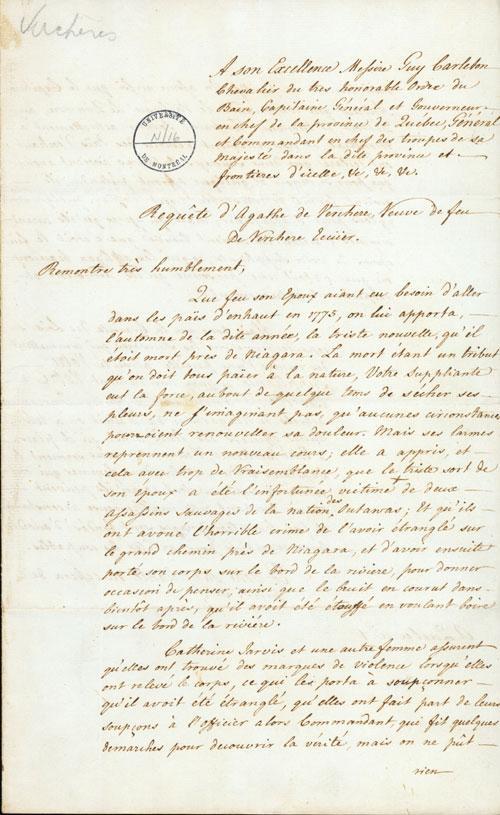 Verchères
A son Excellence Messire Guy Carleton
Chevalier du tres honorable Ordre du
Bain, Capitaine Général et Gouverneur
en chef de la province de Québec, Général
et Commandant en chef des troupes de sa
Majesté dans la dite province et
frontières d'icelle, &c, &c, &c.
UNIVERSITÉ
N/16
DE MONTRÉAL
Requête d'Agathe de Verchere, Veuve de feu
De Verchere Ecuier.
Remontre très humblement,
Que feu son Epoux aiant eu besoin d'aller
dans les païs d'enhaut en 1775, on lui apporta,
l'automne de la dite année, la triste nouvelle, qu'il
étoit mort près de Niagara. La mort étant un tribut
qu'on doit tous païer à la nature, Votre Suppliante
eut la force, au bout de quelque tems de sécher ses
pleurs, ne s'imaginant pas, qu'aucunes circonstances
pourroient renouveller sa douleur. Mais ses larmes
reprennent un nouveau cours; elle a appris, et
cela avec trop de Vraisemblance, que le triste sort de
son époux a été l'infortunée victime de deux
assassins sauvages de la nation des Outawas; Et qu'ils
ont avoué l'horrible crime de l'avoir étranglé sur
le grand chemin près de Niagara, et d'avoir ensuite
porté son corps sur le bord de la rivière, pour donner
occasion de penser, ainsi que le bruit en courut dans
bientôt après, qu'il avoit été étouffé en voulant boire
sur le bord de la rivière.
Catherine Jarvis et une autre femme assurent
qu'elles ont trouvé des marques de violence lorsqu'elles
ont relevé le corps, ce qui les porta à soupçonner
qu'il avoit été étranglé, qu'elles ont fait part de leurs
soupçons à l'officier alors Commandant, qui fit quelques
demarches pour decouvrir la vérité, mais on ne pût
rien